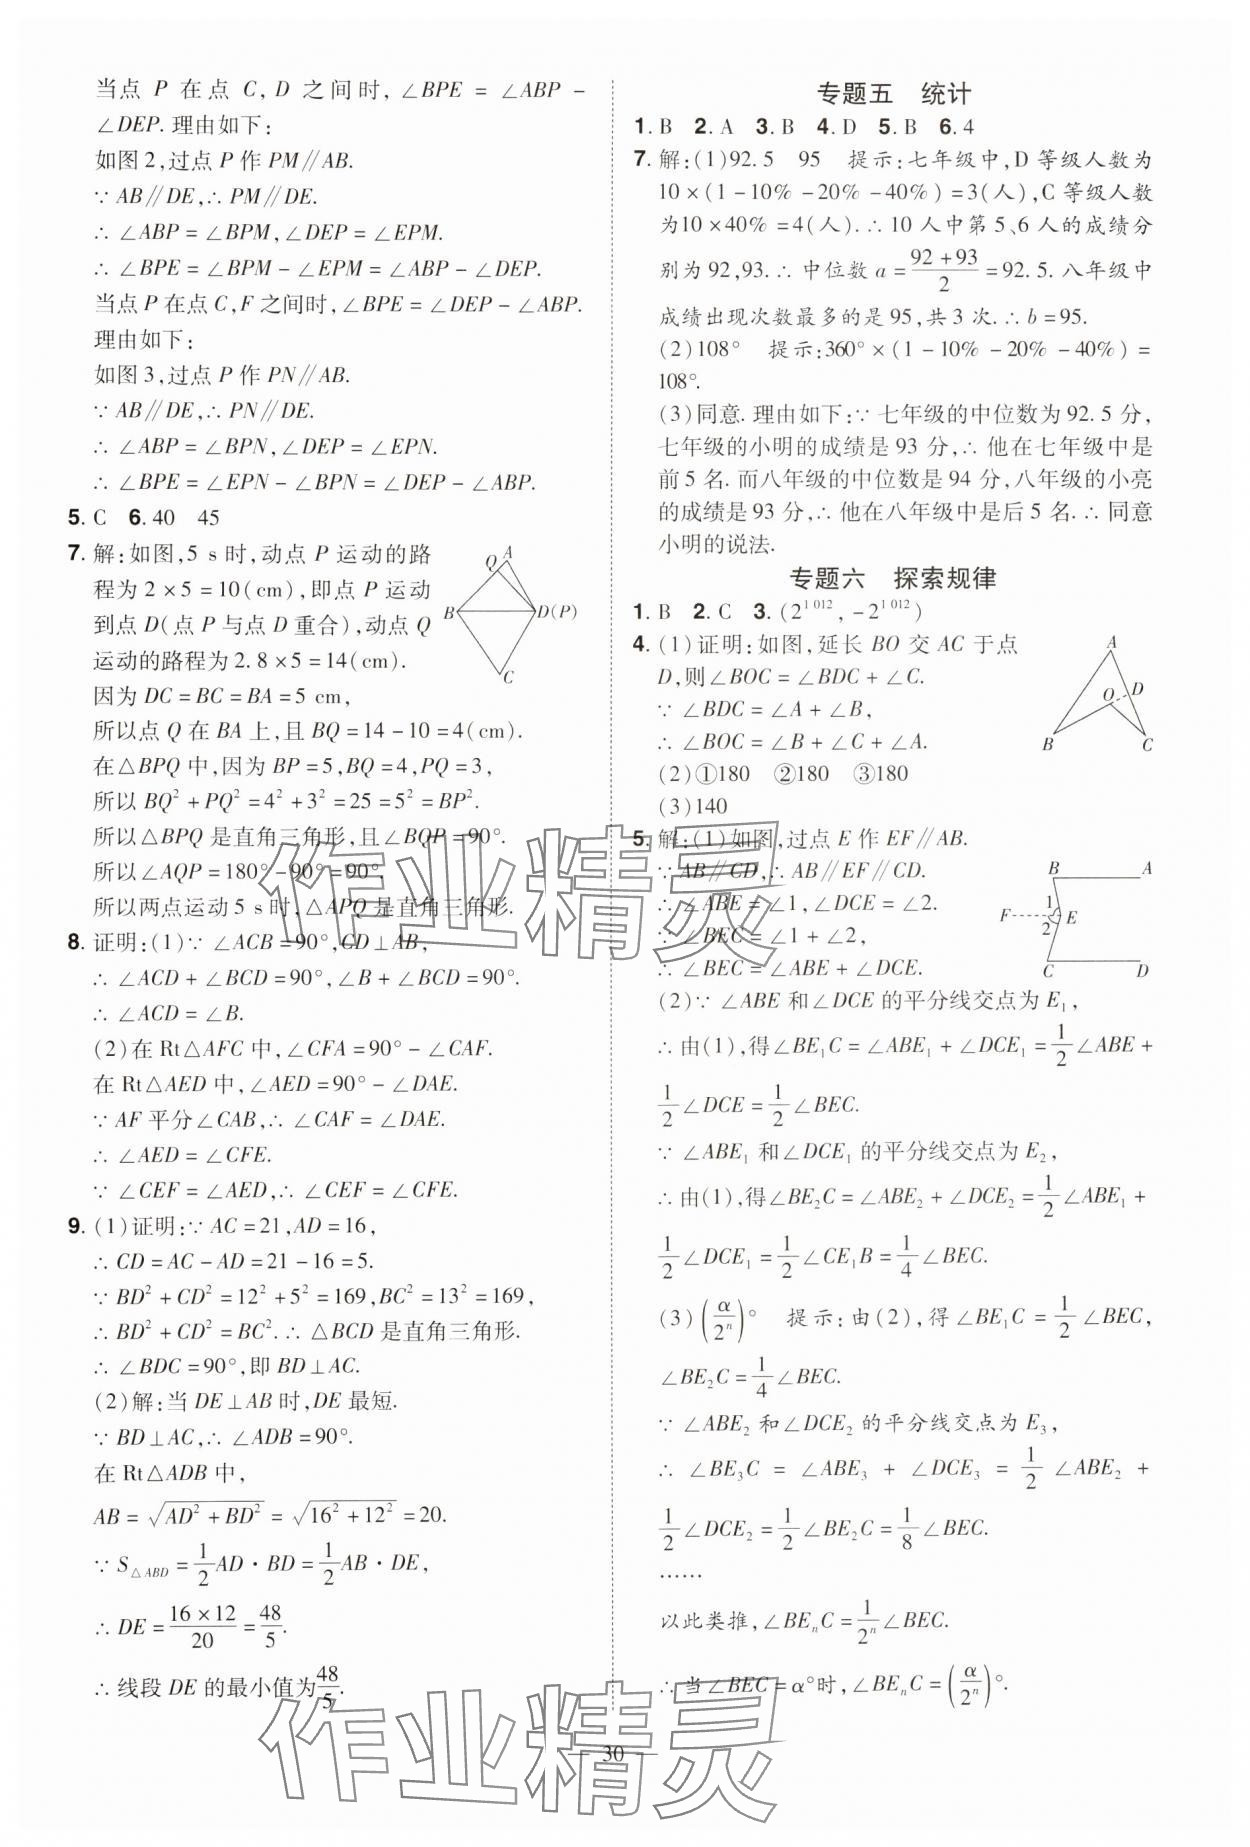 当点 P 在点 C, D 之间时, ∠BPE = ∠ABP −
∠DEP. 理由如下:
如图2,过点 P 作 PM∥AB.
∵ AB∥DE,∴ PM∥DE.
∴ ∠ABP = ∠BPM,∠DEP = ∠EPM.
∴ ∠BPE = ∠BPM − ∠EPM = ∠ABP − ∠DEP.
当点 P 在点 C,F 之间时,∠BPE = ∠DEP − ∠ABP.
理由如下:
如图3,过点 P 作 PN∥AB.
∵ AB∥DE,∴ PN∥DE.
∴ ∠ABP = ∠BPN,∠DEP = ∠EPN.
∴ ∠BPE = ∠EPN − ∠BPN = ∠DEP − ∠ABP.
5. C 6. 40 45
7. 解:如图,5 s 时,动点 P 运动的路
程为 2×5 = 10(cm),即点 P 运动
到点 D(点 P 与点 D 重合),动点 Q
运动的路程为 2.8×5 = 14(cm).
因为 DC = BC = BA = 5 cm,
所以点 Q 在 BA 上,且 BQ = 14 − 10 = 4(cm).
在△BPQ 中,因为 BP = 5,BQ = 4,PQ = 3,
所以 BQ² + PQ² = 4² + 3² = 25 = 5² = BP².
所以△BPQ 是直角三角形,且∠BQP = 90°.
所以∠AQP = 180° − 90° = 90°.
所以两点运动5 s时,△APQ是直角三角形.
A
Q
B
D(P)
C
8. 证明:(1)∵ ∠ACB = 90°,CD⊥AB,
∴ ∠ACD + ∠BCD = 90°,∠B + ∠BCD = 90°.
∴ ∠ACD = ∠B.
(2)在 Rt△AFC 中,∠CFA = 90° − ∠CAF.
在 Rt△AED 中,∠AED = 90° − ∠DAE.
∵ AF 平分∠CAB,∴ ∠CAF = ∠DAE.
∴ ∠AED = ∠CFE.
∵ ∠CEF = ∠AED,∴ ∠CEF = ∠CFE.
9. (1)证明:∵ AC = 21,AD = 16,
∴ CD = AC − AD = 21 − 16 = 5.
∵ BD² + CD² = 12² + 5² = 169,BC² = 13² = 169,
∴ BD² + CD² = BC².∴ △BCD 是直角三角形.
∴ ∠BDC = 90°,即 BD⊥AC.
(2)解:当 DE⊥AB 时,DE 最短.
∵ BD⊥AC,∴ ∠ADB = 90°.
在 Rt△ADB 中,
AB = √(AD² + BD²) = √(16² + 12²) = 20.
∵ S△ABD = 1/2 AD·BD = 1/2 AB·DE,
∴ DE = (16×12)/20 = 48/5.
∴ 线段 DE 的最小值为 48/5.
专题五 统计
1. B 2. A 3. B 4. D 5. B 6. 4
7. 解:(1)92.5 95 提示:七年级中,D 等级人数为
10×(1 − 10% − 20% − 40%) = 3(人),C 等级人数
为10×40% = 4(人).∴ 10 人中第 5、6 人的成绩分
别为 92,93.∴ 中位数 a = (92 + 93)/2 = 92.5.八年级中
成绩出现次数最多的是 95,共 3 次.∴ b = 95.
(2)108° 提示:360°×(1 − 10% − 20% − 40%) =
108°.
(3)同意. 理由如下:∵ 七年级的中位数为 92.5 分,
七年级的小明的成绩是 93 分,∴ 他在七年级中是
前 5 名. 而八年级的中位数是 94 分,八年级的小亮
的成绩是 93 分,∴ 他在八年级中是后 5 名.∴ 同意
小明的说法.
专题六 探索规律
1. B 2. C 3. (2^1 012, −2^1 012)
4. (1)证明:如图,延长 BO 交 AC 于点
D,则∠BOC = ∠BDC + ∠C.
∵ ∠BDC = ∠A + ∠B,
∴ ∠BOC = ∠B + ∠C + ∠A.
(2)①180 ②180 ③180
(3)140
A
O
D
B
C
5. 解:(1)如图,过点 E 作 EF∥AB.
∵ AB∥CD,∴ AB∥EF∥CD.
∴ ∠ABE = ∠1,∠DCE = ∠2.
∵ ∠BEC = ∠1 + ∠2,
∴ ∠BEC = ∠ABE + ∠DCE.
B
A
1
F
E
2
C
D
(2)∵ ∠ABE 和∠DCE 的平分线交点为 E₁,
∴ 由(1),得∠BE₁C = ∠ABE₁ + ∠DCE₁ = 1/2 ∠ABE +
1/2 ∠DCE = 1/2 ∠BEC.
∵ ∠ABE₁ 和∠DCE₁ 的平分线交点为 E₂,
∴ 由(1),得∠BE₂C = ∠ABE₂ + ∠DCE₂ = 1/2 ∠ABE₁ +
1/2 ∠DCE₁ = 1/2 ∠CE₁B = 1/4 ∠BEC.
(3)(α/2ⁿ)° 提示:由(2),得∠BE₁C = 1/2 ∠BEC,
∠BE₂C = 1/4 ∠BEC.
∵ ∠ABE₂ 和∠DCE₂ 的平分线交点为 E₃,
∴ ∠BE₃C = ∠ABE₃ + ∠DCE₃ = 1/2 ∠ABE₂ +
1/2 ∠DCE₂ = 1/2 ∠BE₂C = 1/8 ∠BEC.
……
以此类推,∠BEₙC = 1/2ⁿ ∠BEC.
∴ 当∠BEC = α°时,∠BEₙC = (α/2ⁿ)°.
作业精灵
作业精灵
30